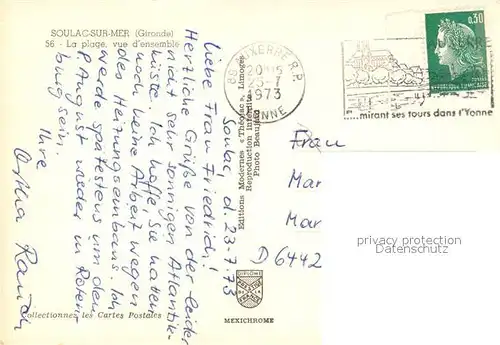 SOULAC-SUR-MER (Gironde)
56 - La plage, vue d'ensemble
Soulac, d. 23.7.73
Liebe Frau Friedrich!
Herzliche Grüße von der leider
nicht sehr sonnigen Atlantik-
küste. Ich hoffe, Sie hatten
noch keine Arbeit wegen
des Heizungseinbaus. Ich
werde spätestens um den
8. August wieder in Rotem-
burg sein.
Ihre
Rauch
Editions Modernes « Théojac », Limoges
Reproduction interdite
Photo Beaujard
Collectionnez les Cartes Postales
DIPLOME
PRESTIGE
DE LA
FRANCE
MEXICHROME
89 AUXERRE R.P.
1973
YONNE
AUXERRE
...mirant ses tours dans l'Yonne
0,30
REPUBLIQUE FRANCAISE
Frau
Mar
Mar
D 6442
privacy protection
Datenschutz